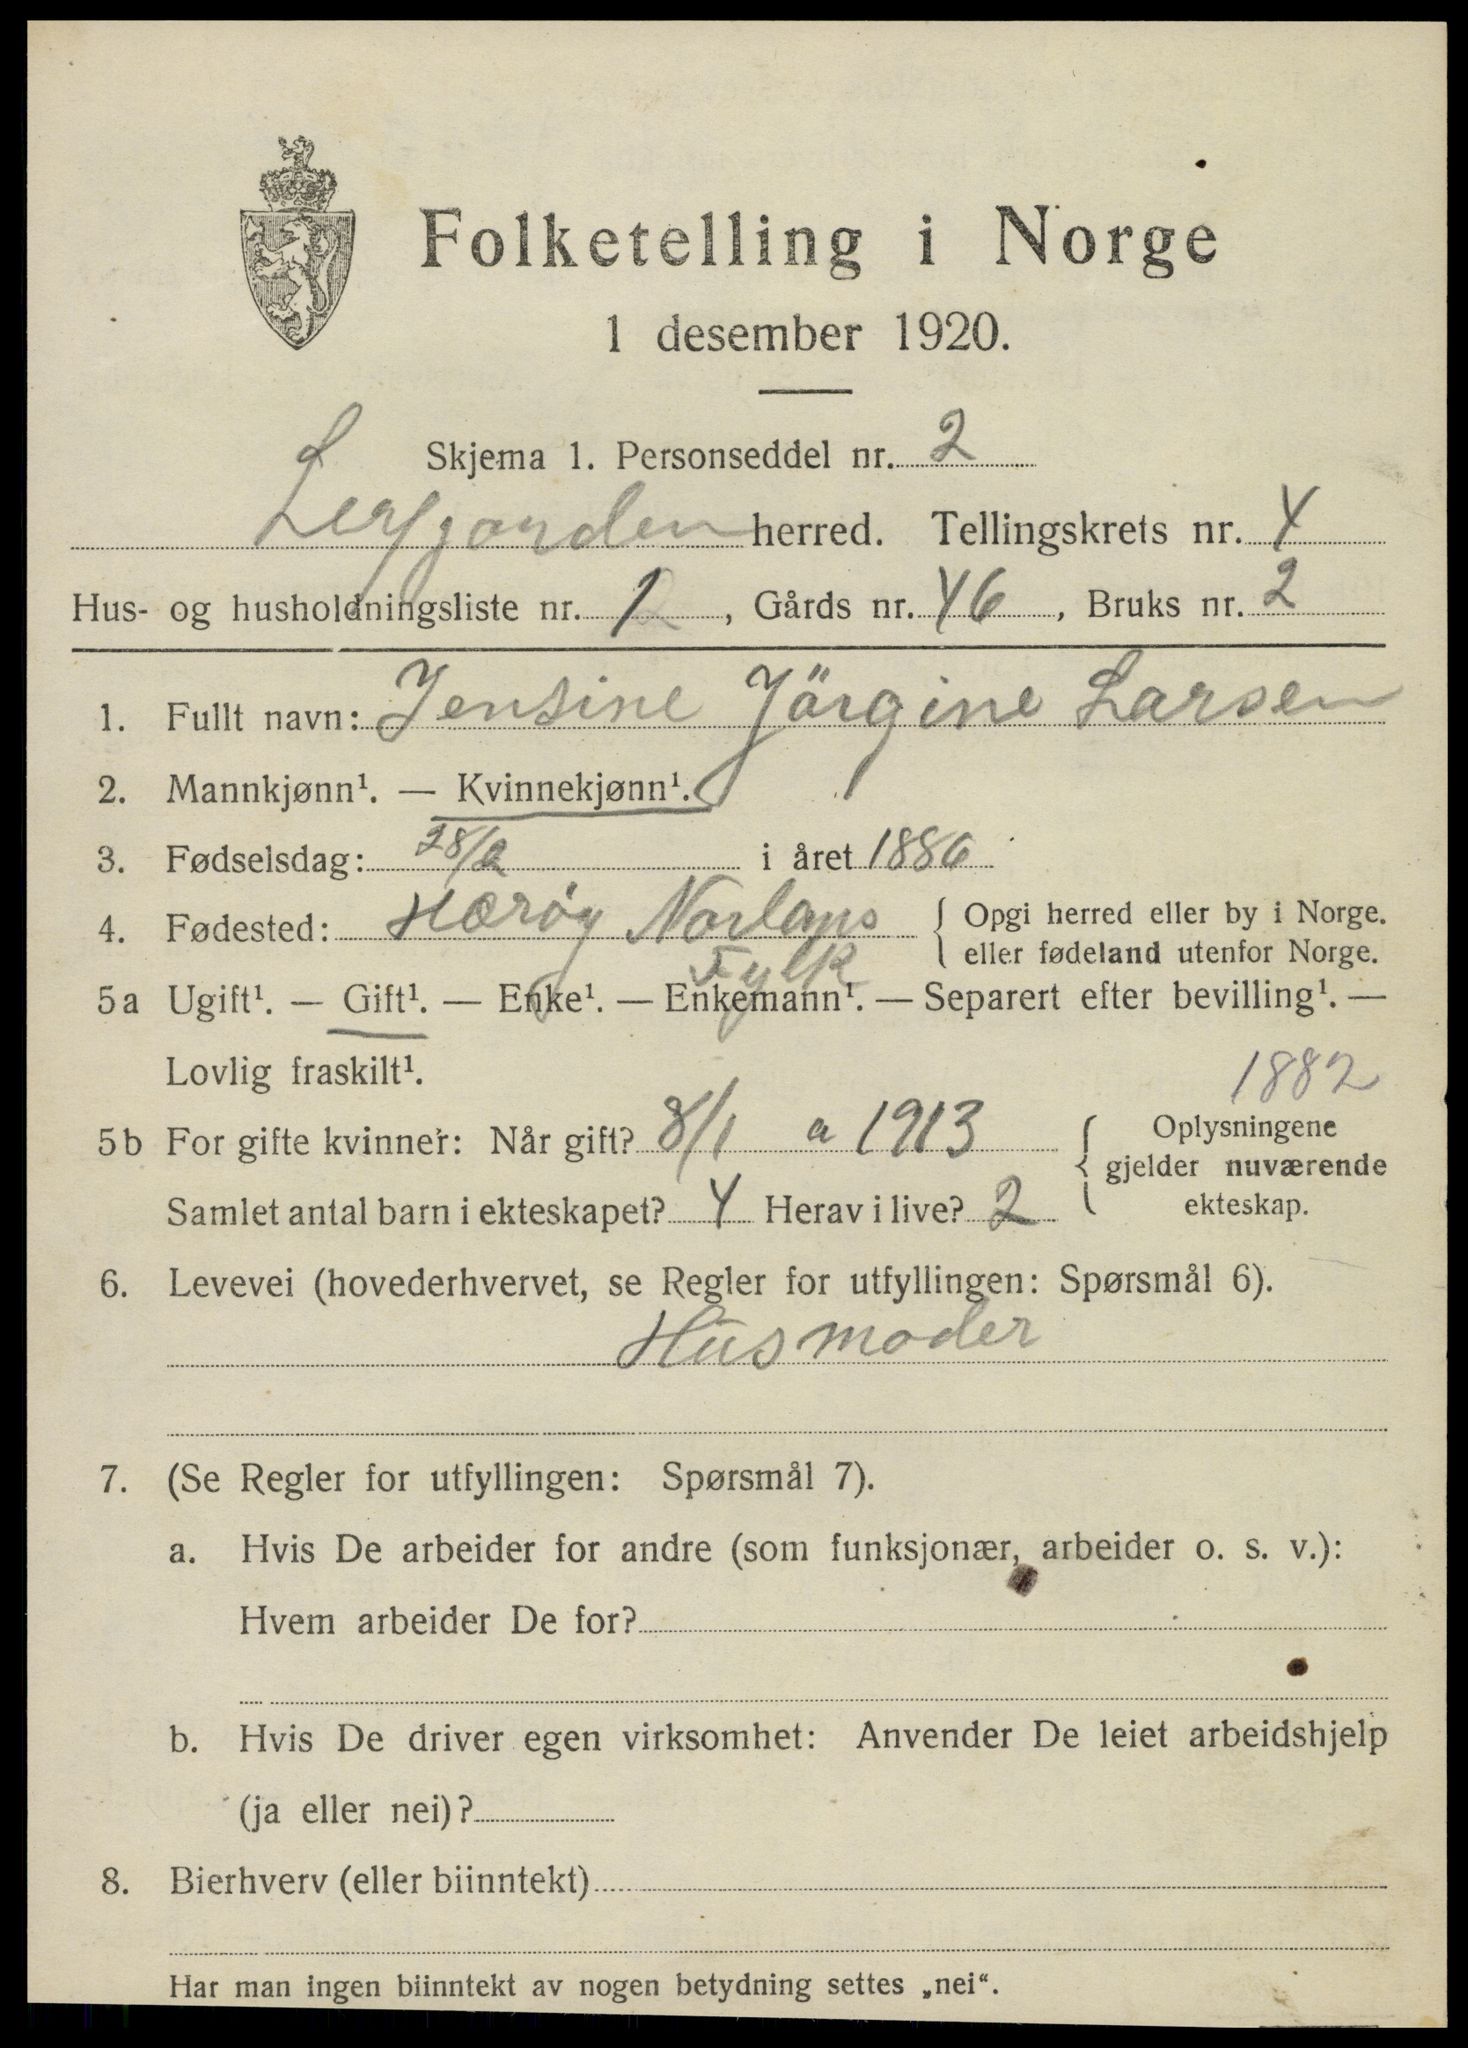 Folketelling i Norge
1 desember 1920.
Skjema 1. Personseddel nr. 2
Leirfjorden herred. Tellingskrets nr. 4
Hus- og husholdningsliste nr. 1, Gårds nr. 46, Bruks nr. 2
1. Fullt navn: Jensine Jörgine Larsen
2. Mannkjønn¹. — Kvinnekjønn¹.
3. Fødselsdag: 28/2 i året 1886
4. Fødested: Hærøy Norlans { Opgi herred eller by i Norge.
Fylk eller fødeland utenfor Norge.
5a Ugift¹. — Gift¹. — Enke¹. — Enkemann¹. — Separert efter bevilling¹. —
Lovlig fraskilt¹.
1882
5b For gifte kvinner: Når gift? 8/1 a 1913 { Oplysningene
gjelder nuværende
Samlet antal barn i ekteskapet? 4 Herav i live? 2 ekteskap.
6. Levevei (hovederhvervet, se Regler for utfyllingen: Spørsmål 6).
Husmoder
7. (Se Regler for utfyllingen: Spørsmål 7).
a. Hvis De arbeider for andre (som funksjonær, arbeider o. s. v.):
Hvem arbeider De for?
b. Hvis De driver egen virksomhet: Anvender De leiet arbeidshjelp
(ja eller nei)?
8. Bierhverv (eller biinntekt)
Har man ingen biinntekt av nogen betydning settes „nei“.